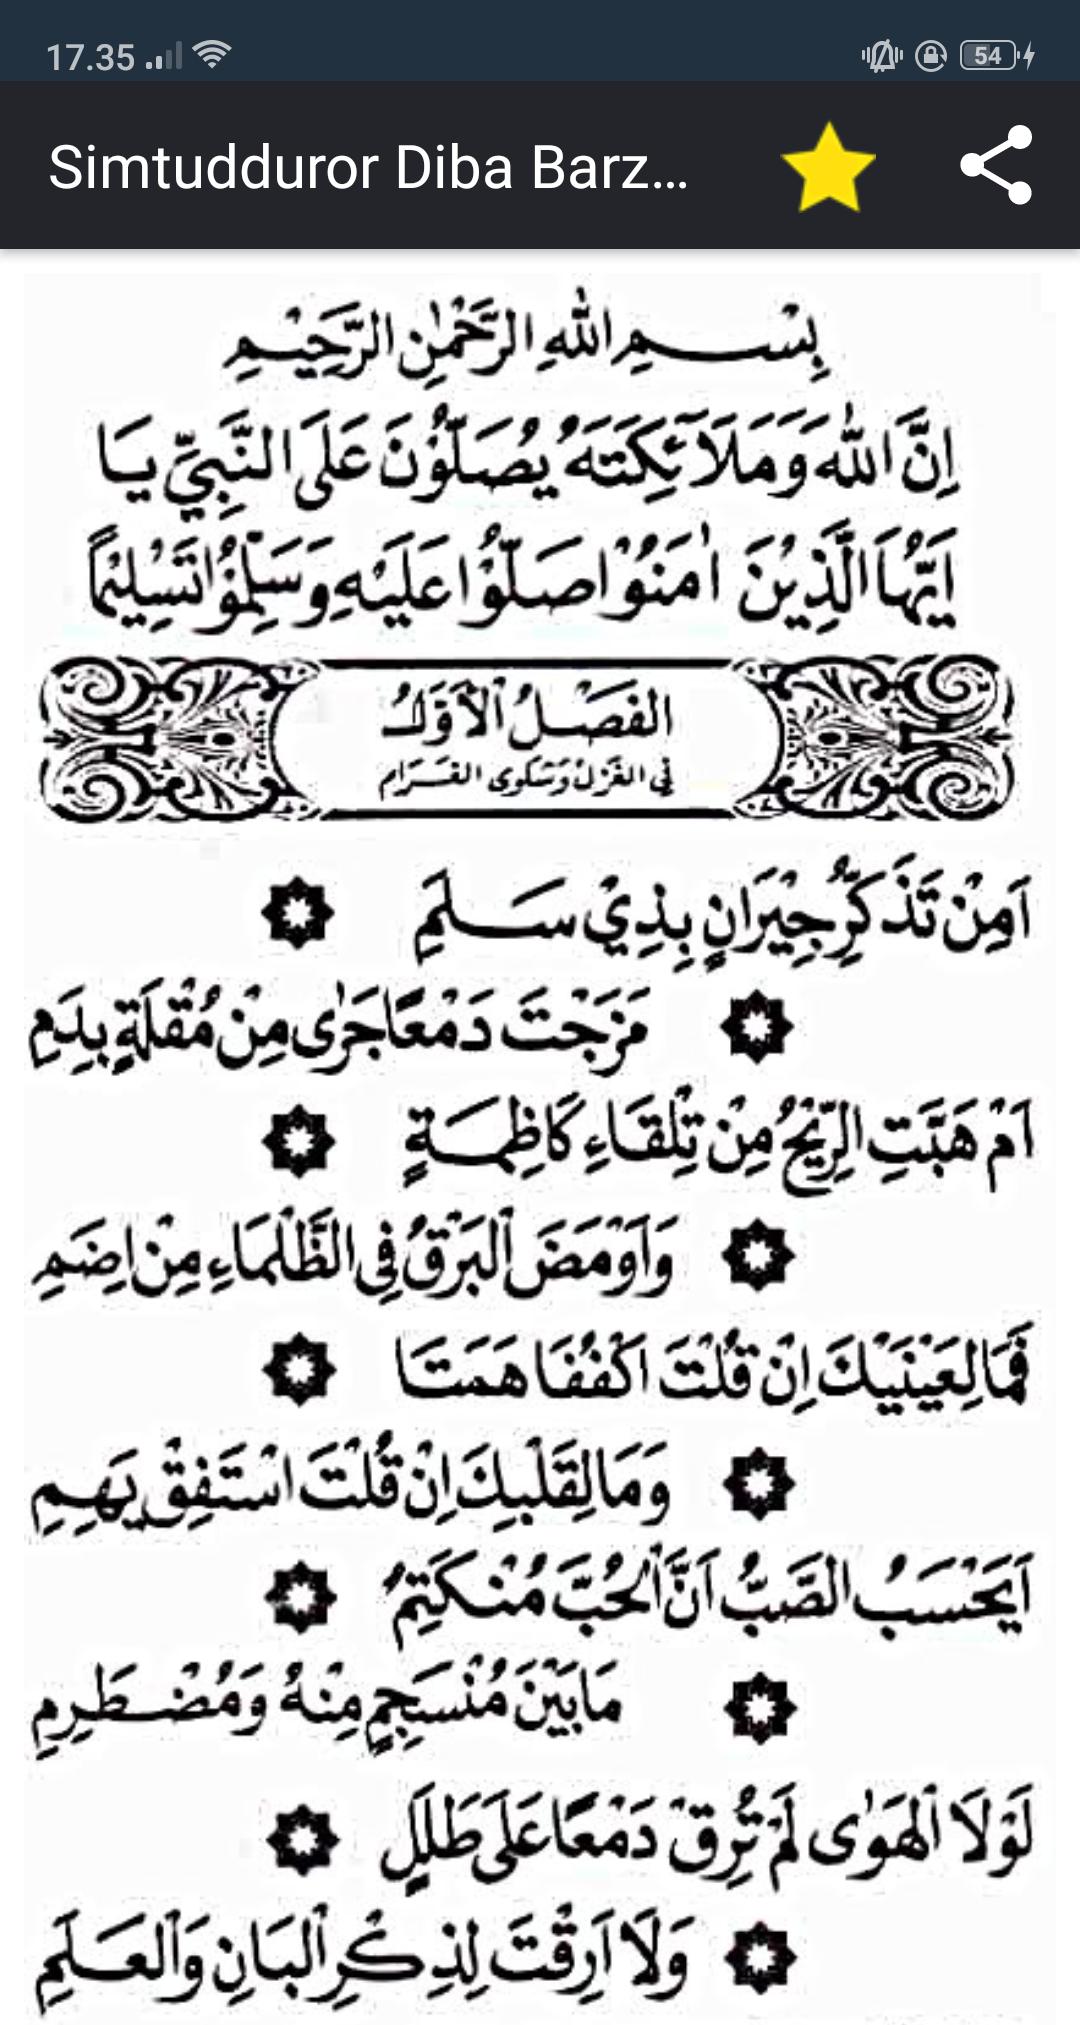 17.35
54
Simtudduror Diba Barz...
بِسْمِ اللهِ الرَّحْمٰنِ الرَّحِيْمِ
اِنَّ اللهَ وَمَلَائِكَتَهُ يُصَلُّوْنَ عَلَى النَّبِيِّ يَا
اَيُّهَا الَّذِيْنَ اٰمَنُوْا صَلُّوْا عَلَيْهِ وَسَلِّمُوْا تَسْلِيْمًا
الفَصْلُ الْاَوَّلُ
فِي الغَزَلِ وَشَكْوَى الغَرَامِ
اَمِنْ تَذَكُّرِ جِيْرَانٍ بِذِيْ سَلَمِ
مَزَجْتَ دَمْعًا جَرٰى مِنْ مُقْلَةٍ بِدَمِ
اَمْ هَبَّتِ الرِّيْحُ مِنْ تِلْقَاءِ كَاظِمَةٍ
وَاَوْمَضَ الْبَرْقُ فِي الظَّلْمَاءِ مِنْ اِضَمِ
فَمَا لِعَيْنَيْكَ اِنْ قُلْتَ اكْفُفَا هَمَتَا
وَمَا لِقَلْبِكَ اِنْ قُلْتَ اسْتَفِقْ يَهِمِ
اَيَحْسَبُ الصَّبُّ اَنَّ الْحُبَّ مُنْكَتِمٌ
مَا بَيْنَ مُنْسَجِمٍ مِنْهُ وَمُضْطَرِمِ
لَوْلَا الْهَوٰى لَمْ تُرِقْ دَمْعًا عَلَى طَلَلٍ
وَلَا اَرِقْتَ لِذِكْرِ الْبَانِ وَالْعَلَمِ